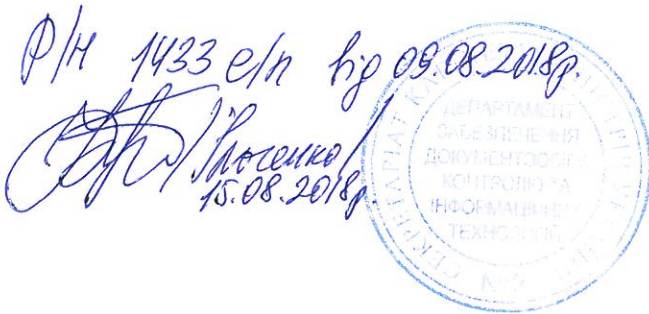 Р/Н 1433 е/п від 09.08.2018р.
15.08.2018р.
СЕКРЕТАРІАТ КАБІНЕТУ МІНІСТРІВ УКРАЇНИ
ДЕПАРТАМЕНТ
ЗАБЕЗПЕЧЕННЯ
ДОКУМЕНТООБІГУ,
КОНТРОЛЮ ТА
ІНФОРМАЦІЙНИХ
ТЕХНОЛОГІЙ